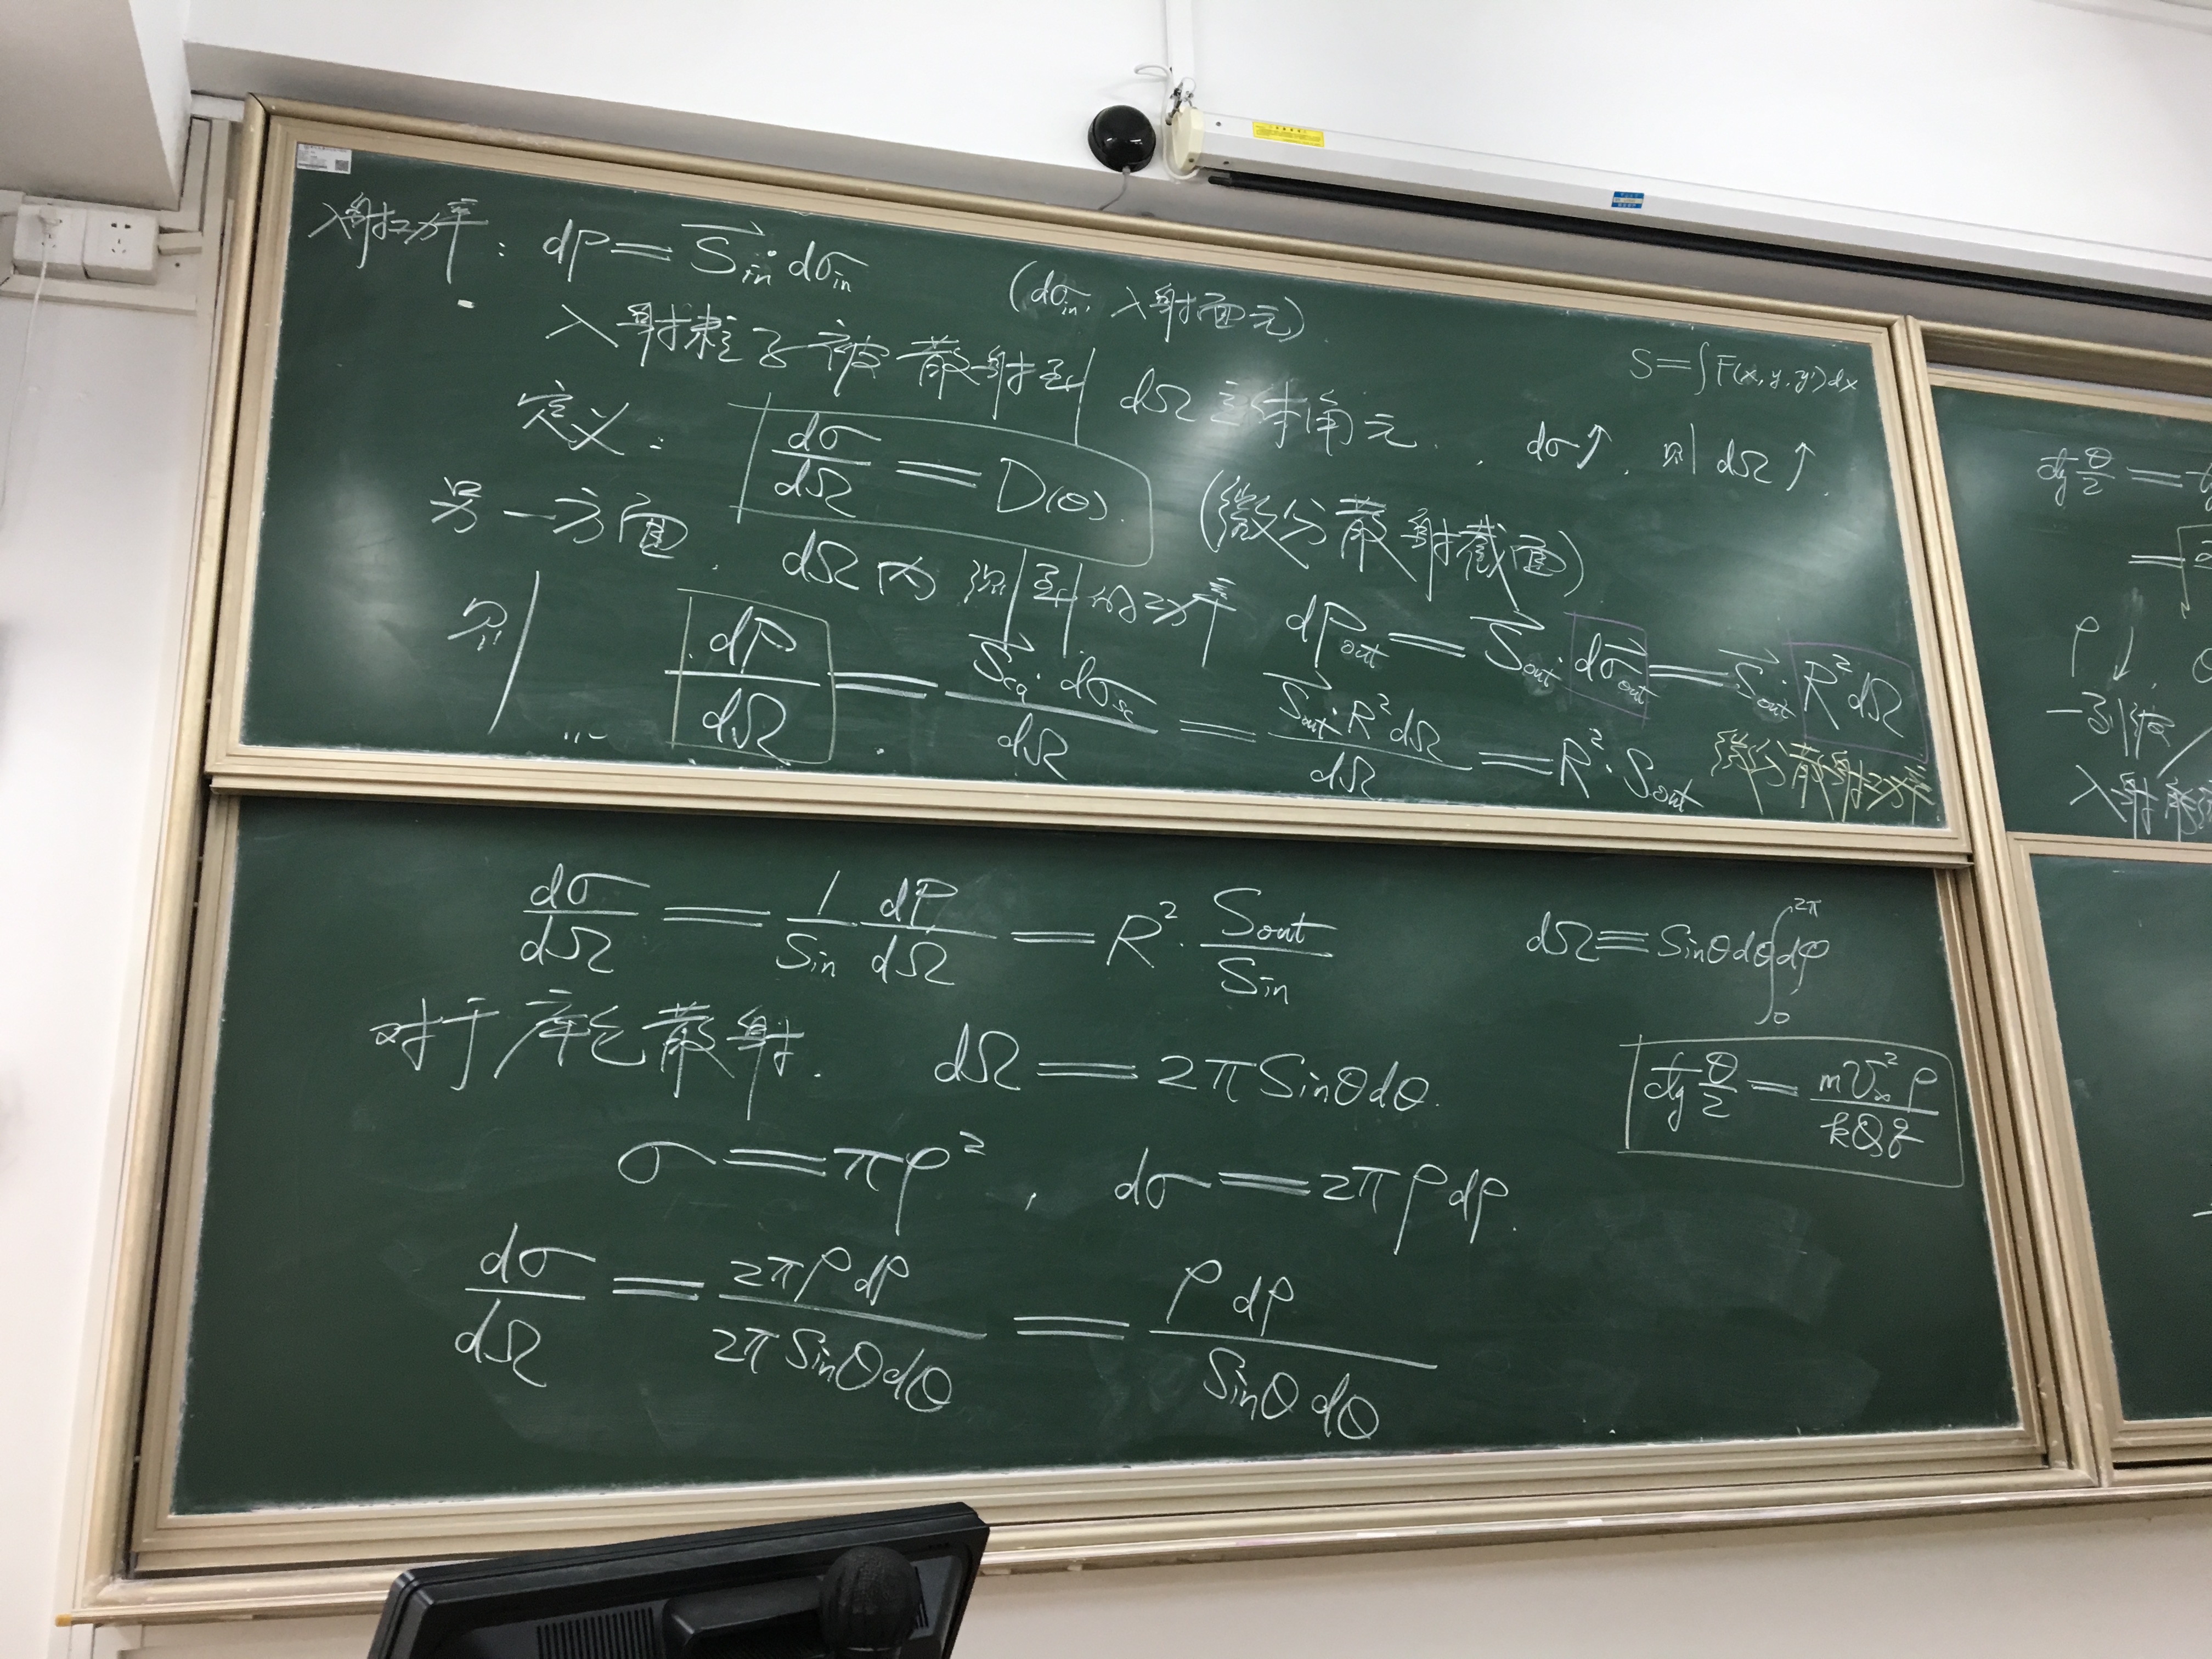 入射功率: dP = S⃗in · dσin (dσin, 入射面元)
入射粒子被散射到 dΩ 立体角元. dσ↑, 则 dΩ↑.
S = ∫F(x, y, y')dx
定义: dσ/dΩ = D(θ). (微分散射截面)
另一方面, dΩ内 的功率 dPout = S⃗out · dσ⃗out = S⃗out · R²dΩ
则 dP/dΩ = · dσsc/dΩ = S⃗out · R²dΩ/dΩ = R² · Sout 微分散射功率
dσ/dΩ = 1/Sin dP/dΩ = R² · Sout/Sin
dΩ = Sinθdθ∫₀^2π dφ
对于库仑散射. dΩ = 2πSinθdθ.
ctg θ/2 = mv∞²ρ/kQq
σ = πρ², dσ = 2πρdρ.
dσ/dΩ = 2πρdρ/2πSinθdθ = ρdρ/Sinθdθ
ctg θ/2 =
=
ρ↓
入射